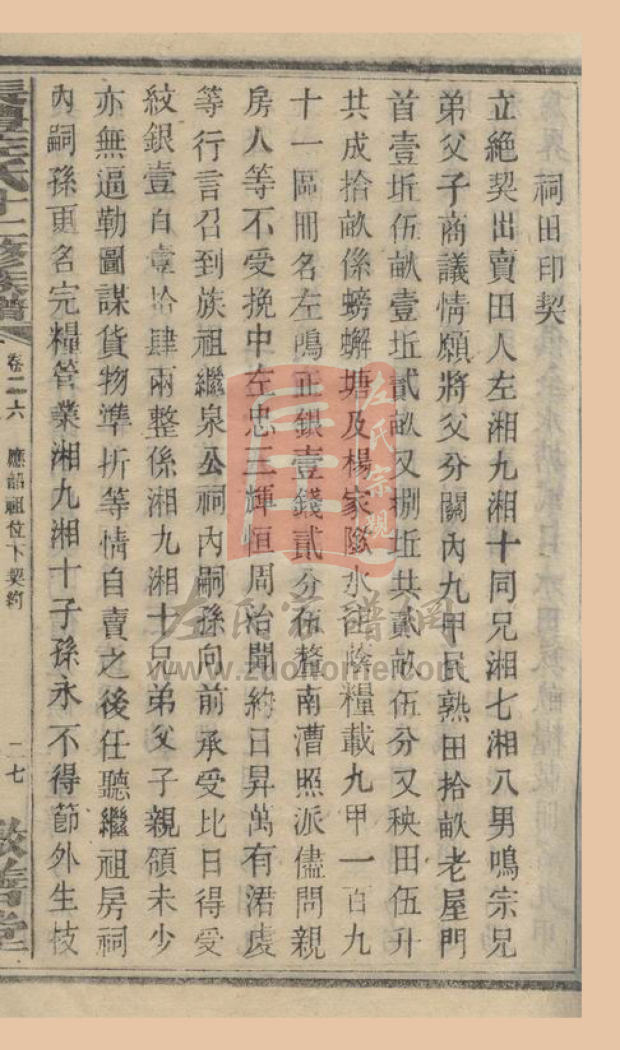 祠田印契
立絕契出賣田人左湘九湘十同兄湘七湘八男鳴宗兄
弟父子商議情願將父分關內九甲民熟田拾畝老屋門
首壹坵伍畝壹坵貳畝又捌坵共貳畝伍分又秧田伍升
共成拾畝係螃蠏塘及楊家隂水注蔭糧載九甲一百九
十一區冊名左鳴正銀壹錢貳分布釐南漕照派儘問親
房人等不受挽中左忠三輝恒周治聞約日昇萬有渃虔
等行言召到族祖繼泉公祠內嗣孫向前承受比日得受
紋銀壹百壹拾肆兩整係湘九湘十兄弟父子親領未少
亦無逼勒圖謀貨物準折等情自賣之後任聽繼祖房祠
內嗣孫更名完糧管業湘九湘十子孫永不得節外生枝
左氏十二修族譜
卷二六 應韶祖位下契約
二七
敬善堂
左氏宗親
左氏宗譜網
www.zuohome.com